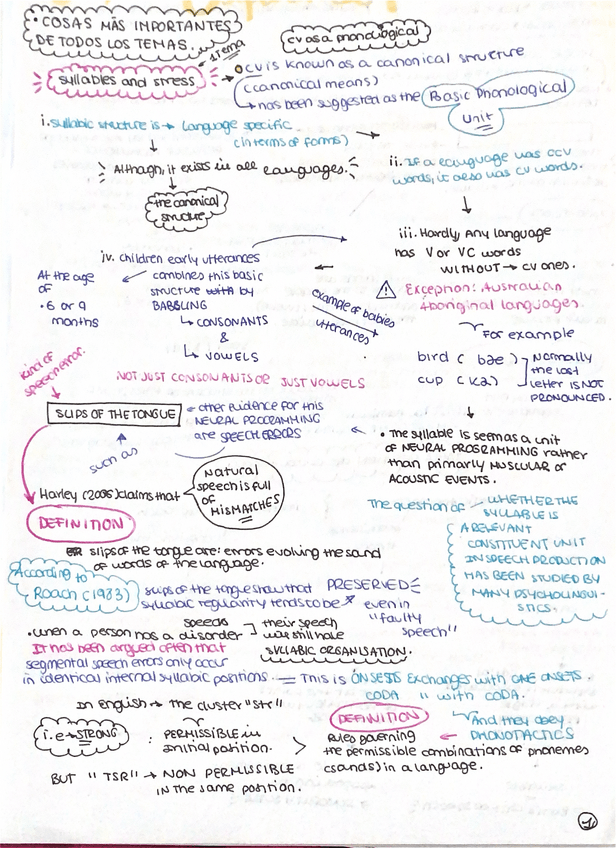 • COSAS MÁS IMPORTANTES
DE TODOS LOS TEMAS.
1 tema
syllables and stress
cv as a phonological
CV is known as a canonical structure
(canonical means)
↳ has been suggested as the Basic Phonological
Unit
i. syllabic structure is → Language specific
(in terms of forms)
Although, it exists in all languages.
the canonical
structure
ii. If a language has CCV
words, it also has CV words.
iii. Hardly, Any language
has V or VC words
WITHOUT → CV ones.
⚠ Exception: Australian
Aboriginal languages.
iv. children early utterances
combines this basic
structure with by
BABBLING
↳ CONSONANTS
&
↳ VOWELS
At the age
of
• 6 or 9
months
example of babies
utterances
For example
bird ( bae )
cup ( ka )
Normally
the last
letter IS NOT
PRONOUNCED.
NOT JUST CONSONANTS OR JUST VOWELS
kind of
speech error.
SLIPS OF THE TONGUE
other evidence for this
NEURAL PROGRAMMING
are SPEECH ERRORS
such as
• The syllable is seem as a unit
of NEURAL PROGRAMMING rather
than primarily MUSCULAR or
ACOUSTIC EVENTS.
Harley (2006) claims that
Natural
speech is full
of
MISMATCHES
The question of
WHETHER THE
SYLLABLE IS
A RELEVANT
CONSTITUENT UNIT
IN SPEECH PRODUCTION
HAS BEEN STUDIED BY
MANY PSYCHOLINGUI-
STICS.
DEFINITION
slips of the tongue are: errors evolving the sound
of words of the language.
According to
Roach (1983)
slips of the tongue show that PRESERVED
syllabic regularity tends to be even in
"faulty
speech"
• when a person has a speech disorder
their speech
was still have
SYLLABIC ORGANISATION.
It has been argued often that
segmental speech errors only occur
in identical internal syllabic positions. = This is ONSETS Exchanges with ONE ONSETS.
CODA " with CODA.
In english → the cluster "str"
i.e → STRONG : PERMISSIBLE in
initial position.
BUT "TSR" → NON PERMISSIBLE
IN the same position.
And they obey
PHONOTACTICS
DEFINITION
Rules governing
the permissible combinations of phonemes
(sounds) in a language.
1